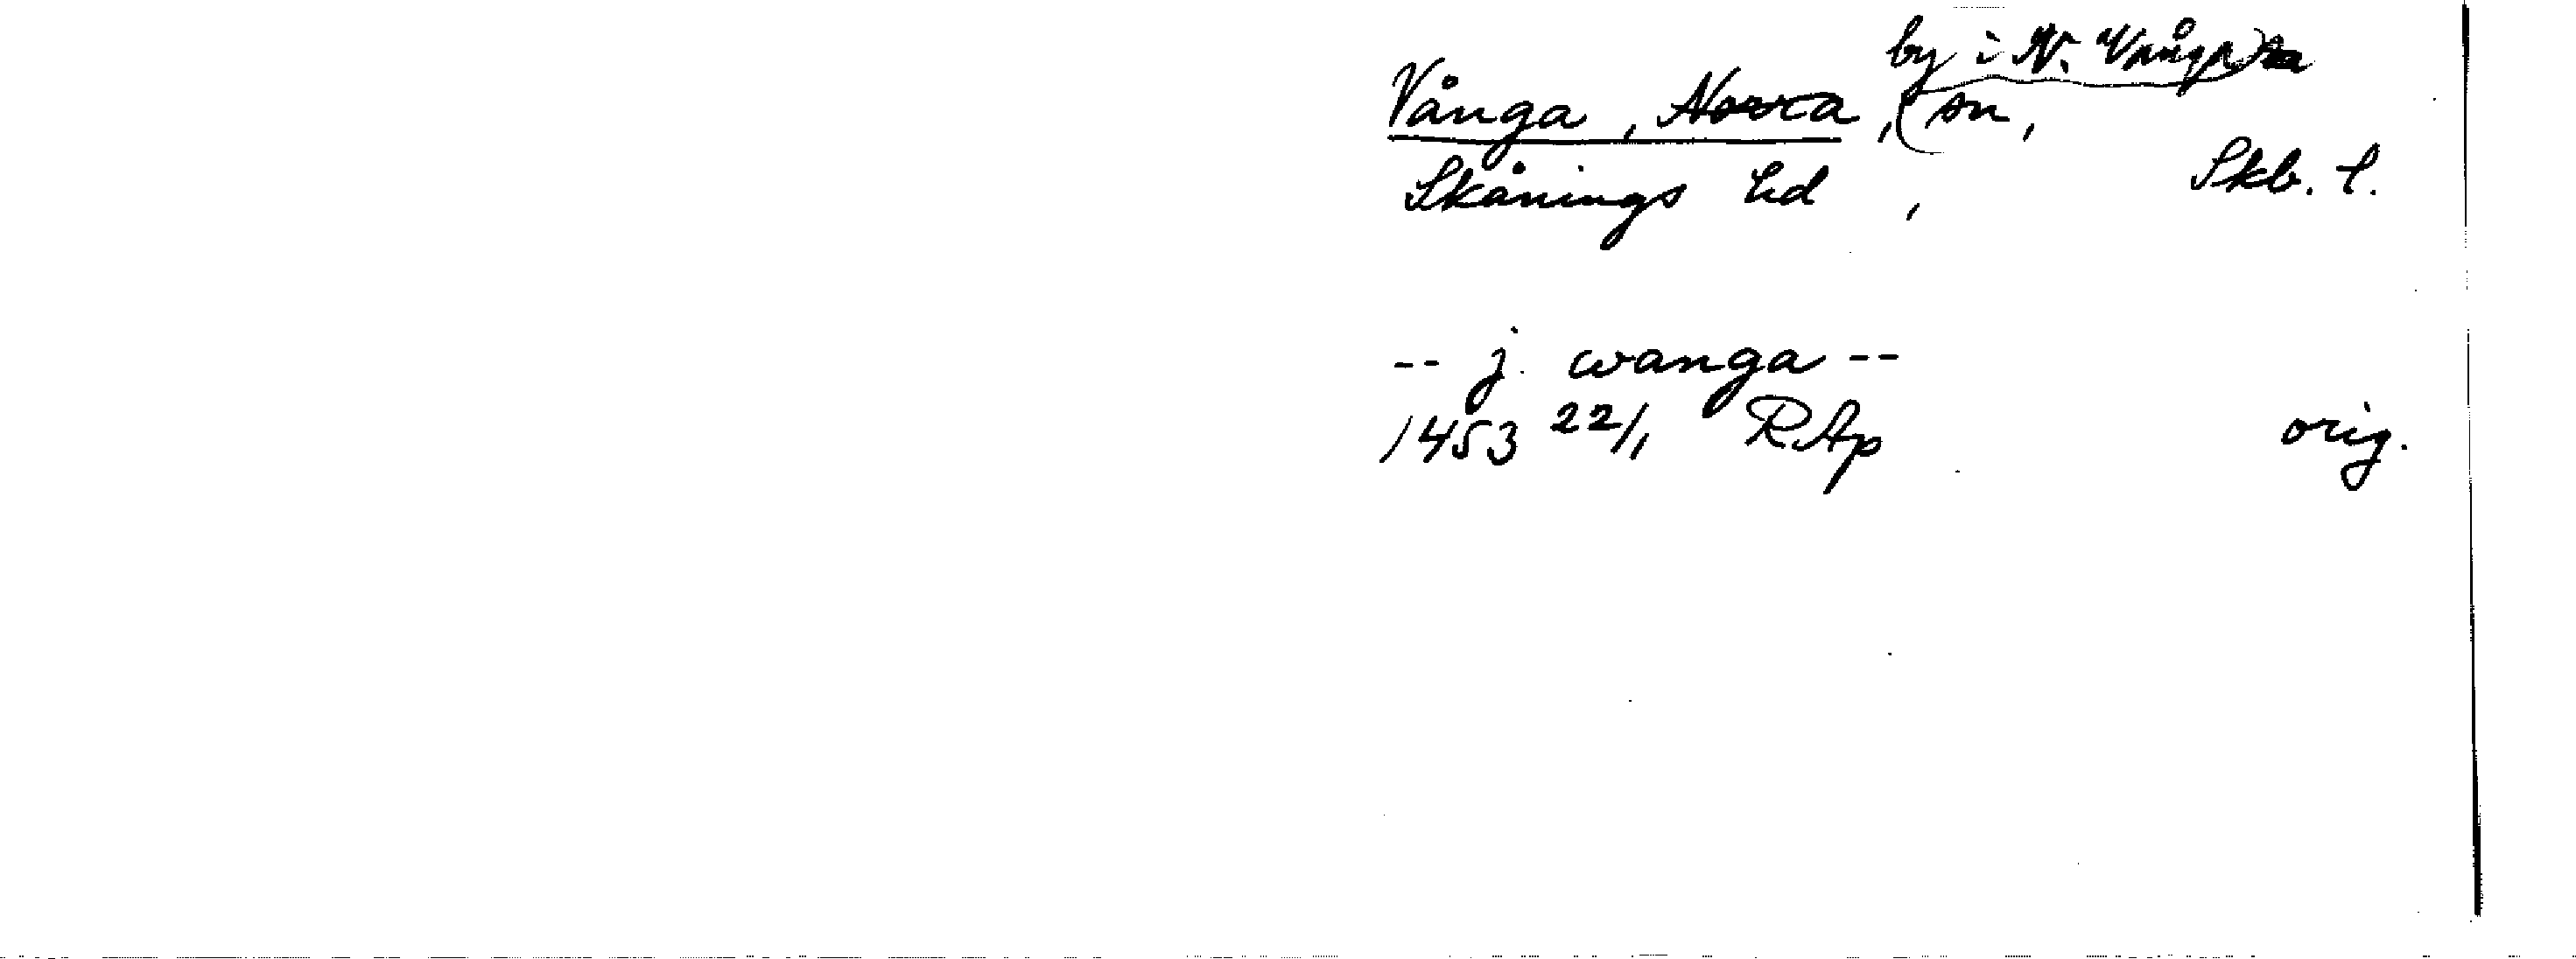 by i N. Vånga
Vånga, Norra, sn,
Skånings hd, Skb. l.
-- j. wanga --
1453 22/1 RAp orig.